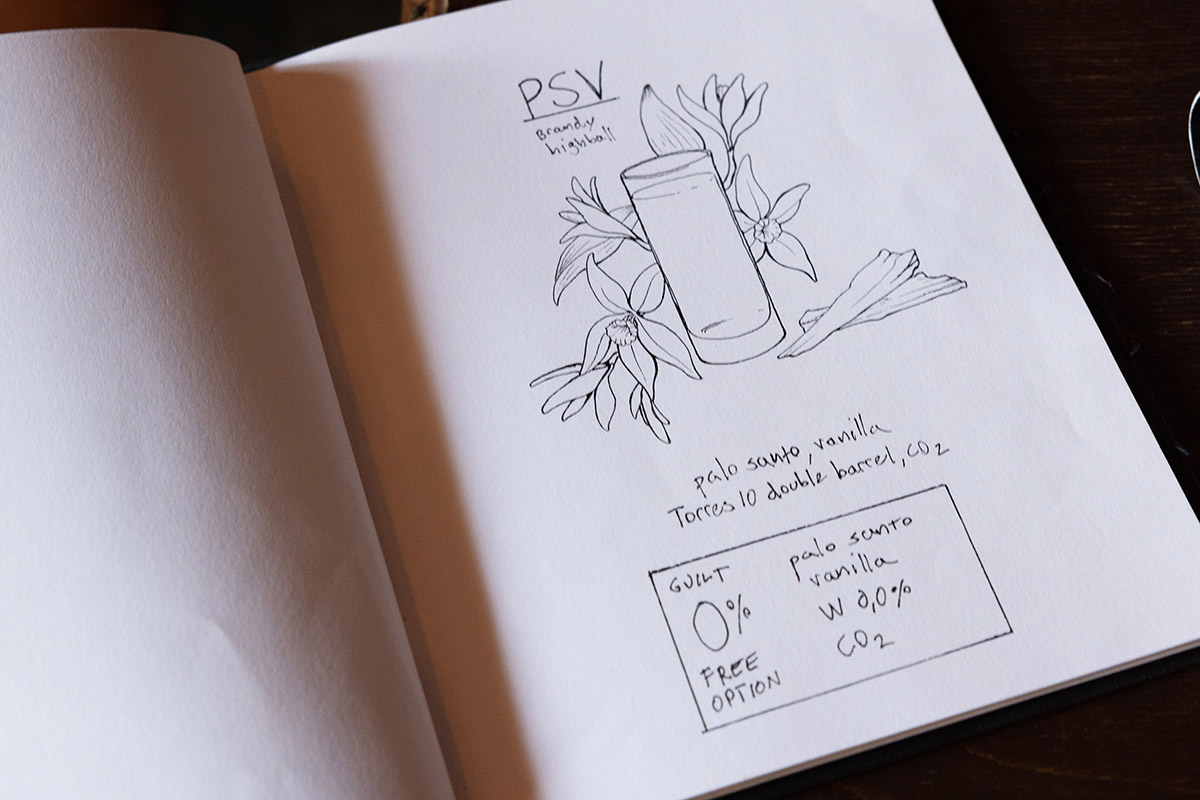 PSV
Brandy
highball
palo santo, vanilla
Torres 10 double barrel, CO2
GUILT
0%
FREE
OPTION
palo santo
vanilla
W 0,0%
CO2